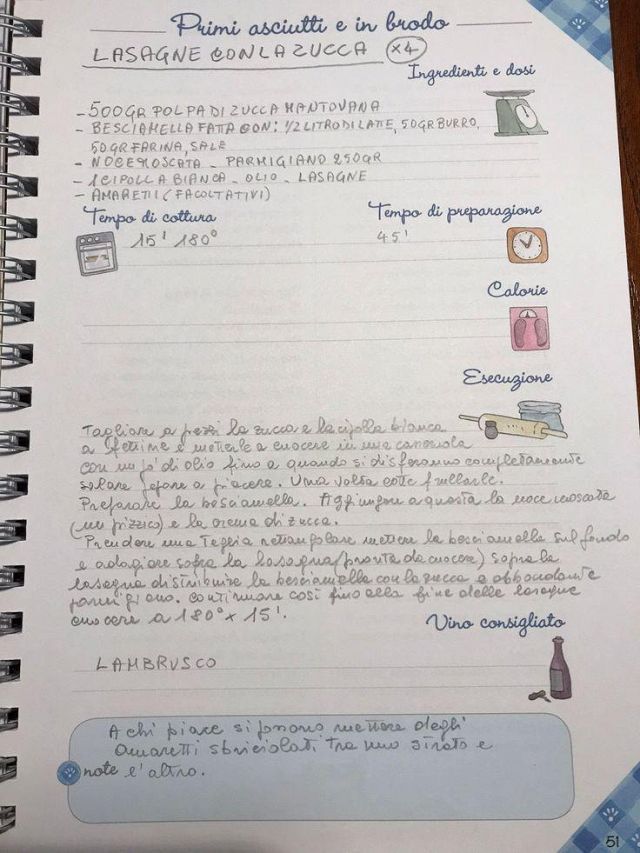 Primi asciutti e in brodo
LASAGNE CON LA ZUCCA x4
Ingredienti e dosi
- 500GR POLPA DI ZUCCA MANTOVANA
- BESCIAMELLA FATTA CON: 1/2 LITRO DI LATTE, 50GR BURRO,
50GR FARINA, SALE
- NOCE MOSCATA - PARMIGIANO 250GR
- 1 CIPOLLA BIANCA - OLIO - LASAGNE
- AMARETTI (FACOLTATIVI)
Tempo di cottura
Tempo di preparazione
15' 180°
45'
Calorie
Esecuzione
Tagliare a pezzi la zucca e la cipolla bianca
a fettine e metterle a cuocere in una casseruola
con un po' di olio fino a quando si disferanno completamente
salare e a piacere. Una volta cotte frullarle.
Preparare la besciamella. Aggiungere a questa la noce moscata
(un pizzico) e la crema di zucca.
Prendere una Teglia rettangolare mettere la besciamella sul fondo
e adagiare sopra la lasagna (pronta da cuocere) sopra la
lasagna distribuire la besciamella con la zucca e abbondante
parmigiano. Continuare così fino alla fine delle lasagne
cuocere a 180° x 15'.
Vino consigliato
LAMBRUSCO
A chi piace si possono mettere degli
Amaretti sbriciolati tra uno strato e
note e l'altro.
51